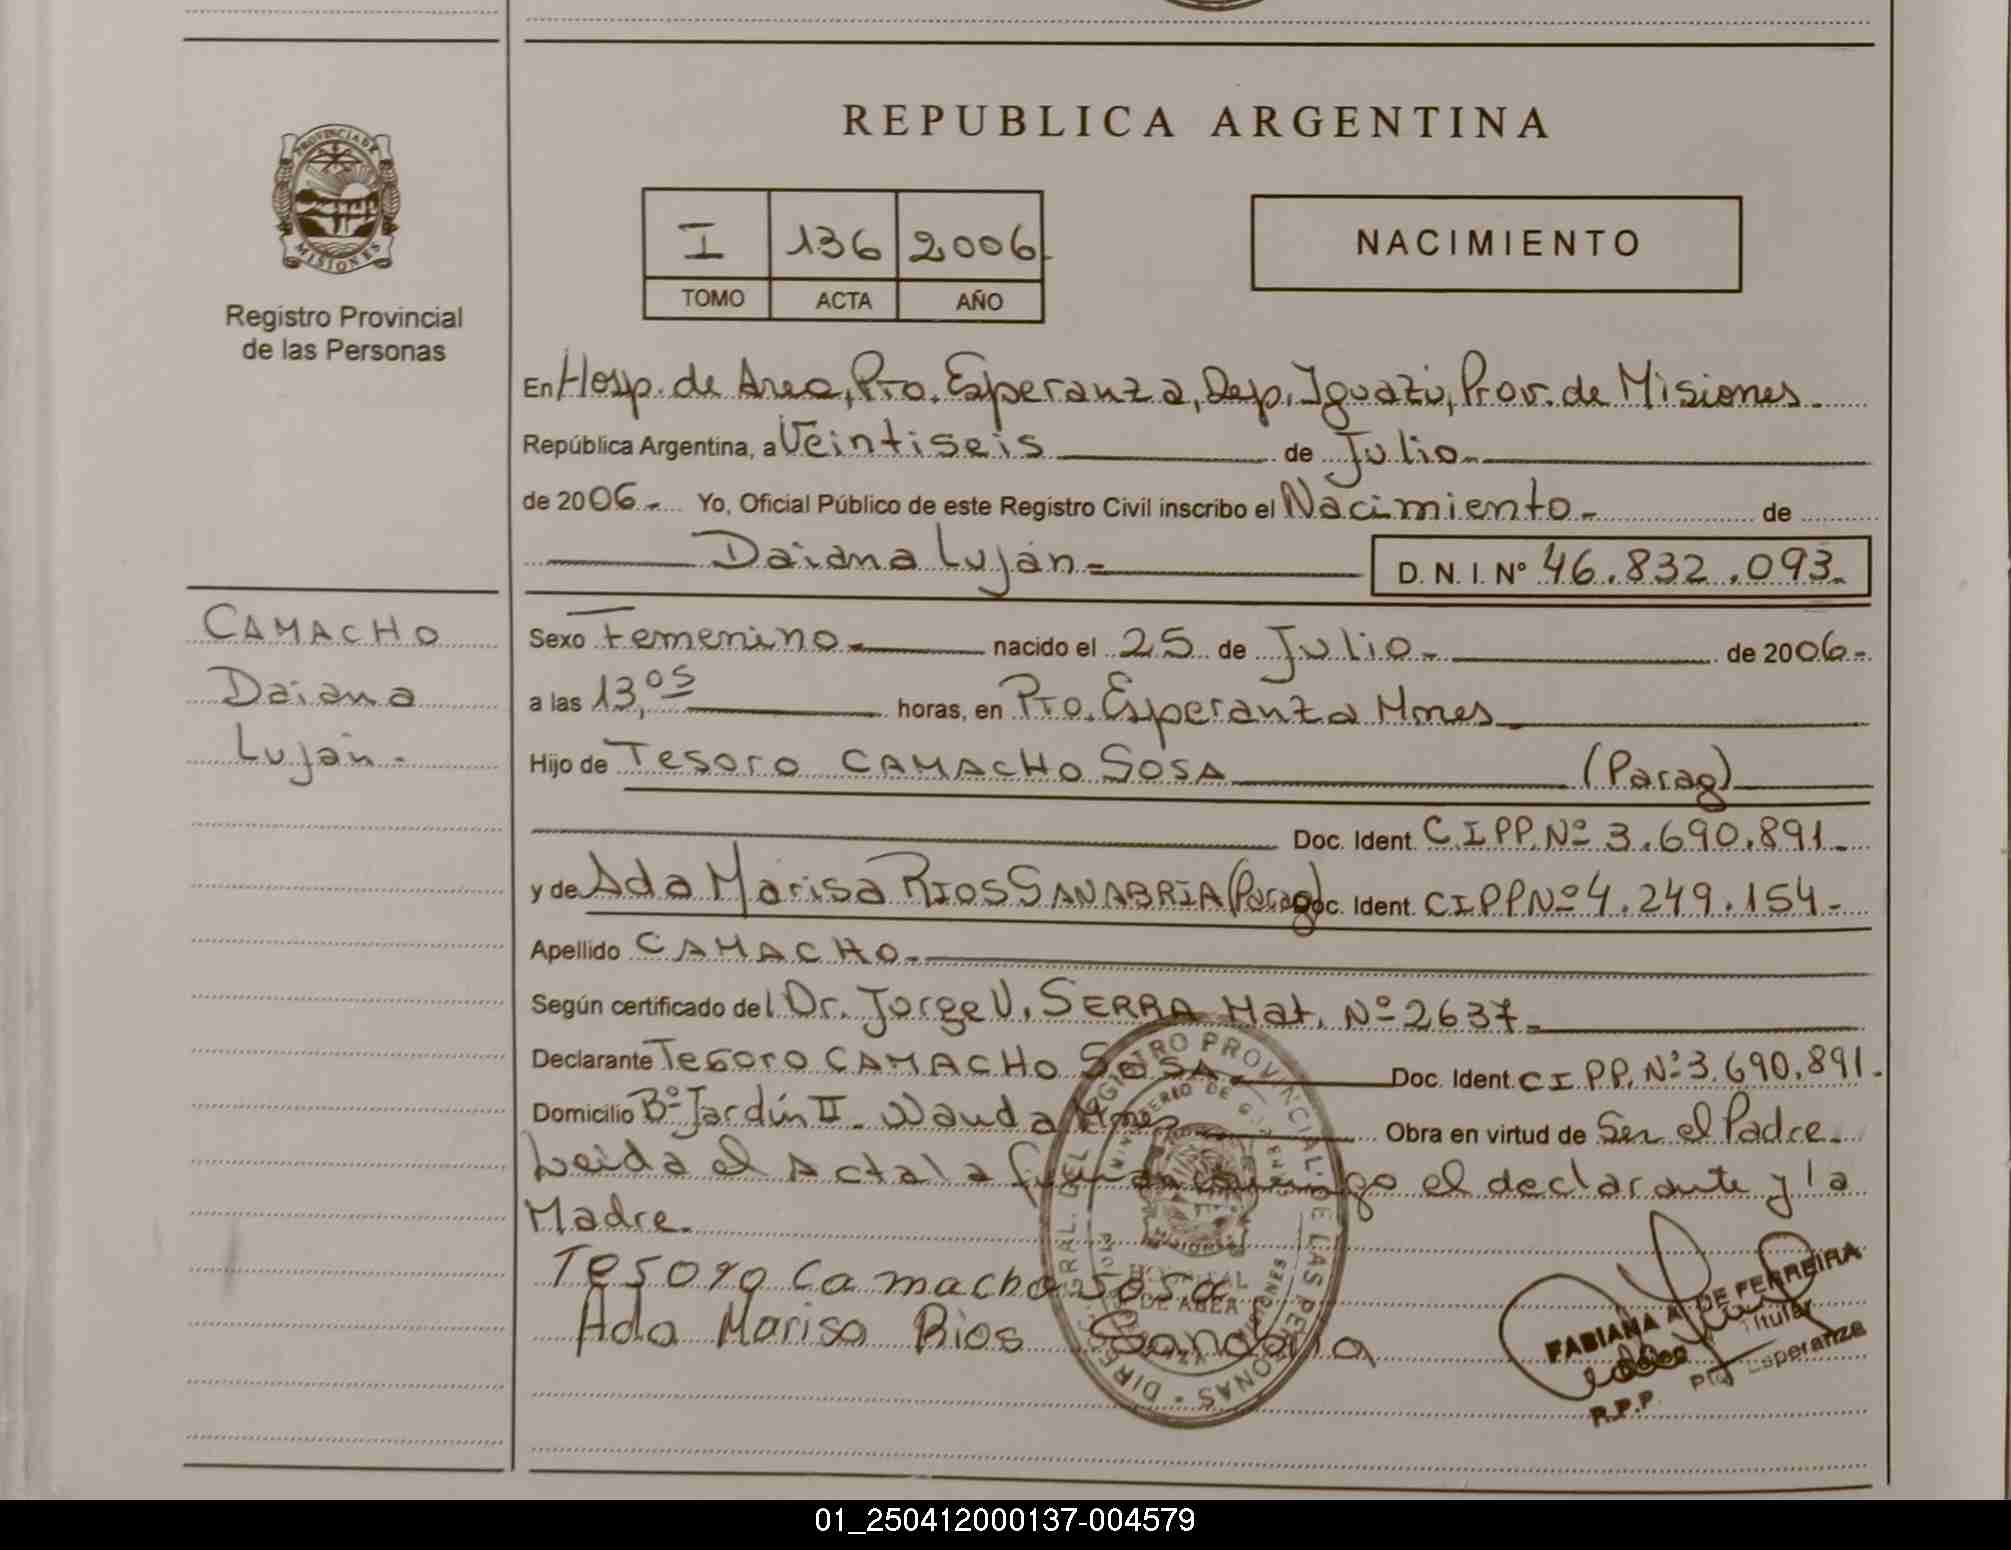 REPUBLICA ARGENTINA
PROVINCIA DE MISIONES
Registro Provincial
de las Personas
I 136 2006
TOMO ACTA AÑO
NACIMIENTO
En Hosp. de Area, Pto. Esperanza, Dep. Iguazú, Prov. de Misiones.
República Argentina, a Veintiseis de Julio.
de 2006.- Yo, Oficial Público de este Registro Civil inscribo el Nacimiento- de
Daiana Luján= D. N. I. Nº 46.832.093.
CAMACHO
Daiana
Luján.
Sexo Femenino. nacido el 25 de Julio. de 2006.-
a las 13,05 horas, en Pto. Esperanza Mnes
Hijo de Tesoro CAMACHO SOSA (Parag)
Doc. Ident. C.I.PP. Nº 3.690.891.
y de Ada Marisa RIOS SANABRIA (Parag) Doc. Ident. CIPP Nº 4.249.154-
Apellido CAMACHO.
Según certificado del Dr. Jorge V. SERRA Mat. Nº 2637.
Declarante Tesoro CAMACHO SOSA Doc. Ident. C I.PP. Nº 3.690.891.
Domicilio Bº Jardín II. Wanda Mnes Obra en virtud de Ser el Padre.
Leida el Acta la el declarante y la
Madre.
Tesoro Camacho Sosa
Ada Marisa Rios Sanabria
DIREC. GRAL. DEL REGISTRO PROVINCIAL DE LAS PERSONAS
HOSPITAL
DE AREA
FABIANA A. DE FERREIRA
Titular
R.P.P. Pto Esperanza
01_250412000137-004579